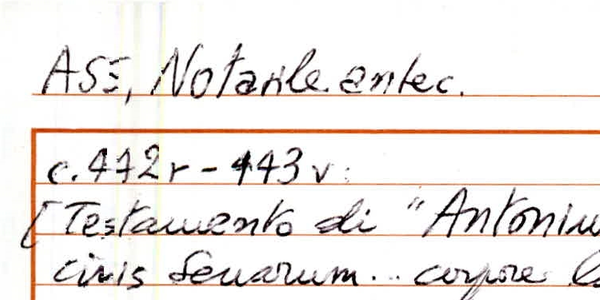 ASF, Notarile antec.
c. 442r - 443v:
[Testamento di "Antoniu
civis Senarum .. corpore la